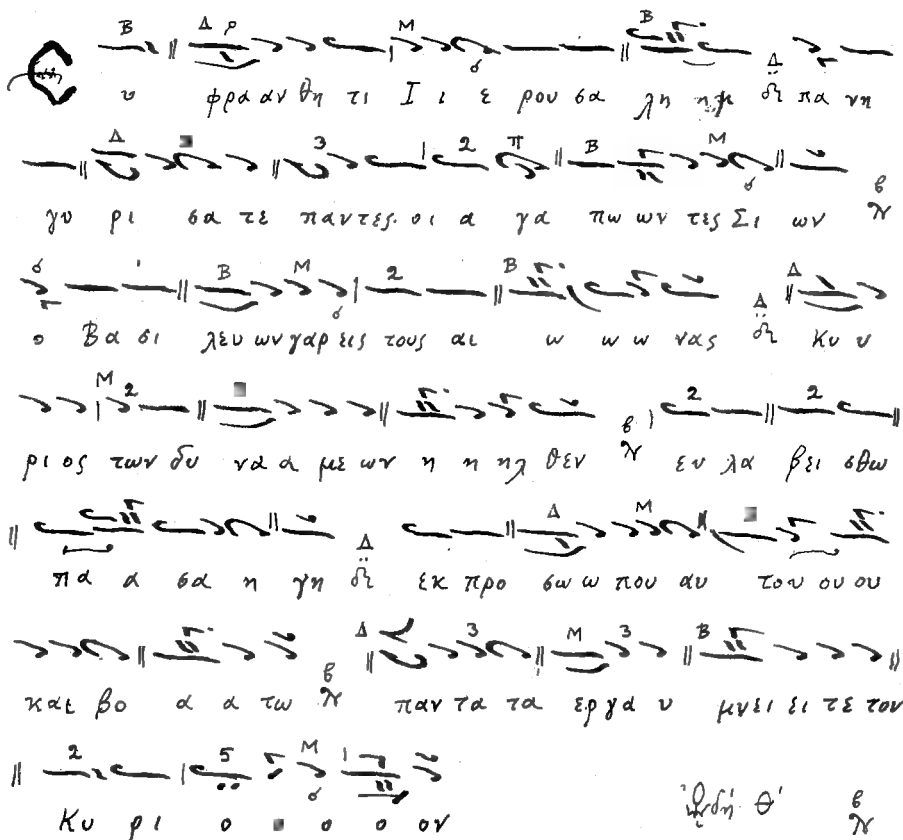 Ε υ φρα αν θη τι Ι ι ε ρου σα λη ημ δι πα νη
γυ ρι σα τε παντες οι α γα πω ων τες Σι ων
ο Βα σι λευ ων γαρ εις τους αι ω ω ω νας δι Κυ υ
ρι ος των δυ να α με ων η η ηλ θεν ευ λα βει σθω
πα α σα η γη δι εκ προ σω ω που αυ του ου ου
και βο α α τω παν τα τα ερ γα υ μνει ει τε τον
Κυ ρι ο ο ο ον ᾨδή Θ'